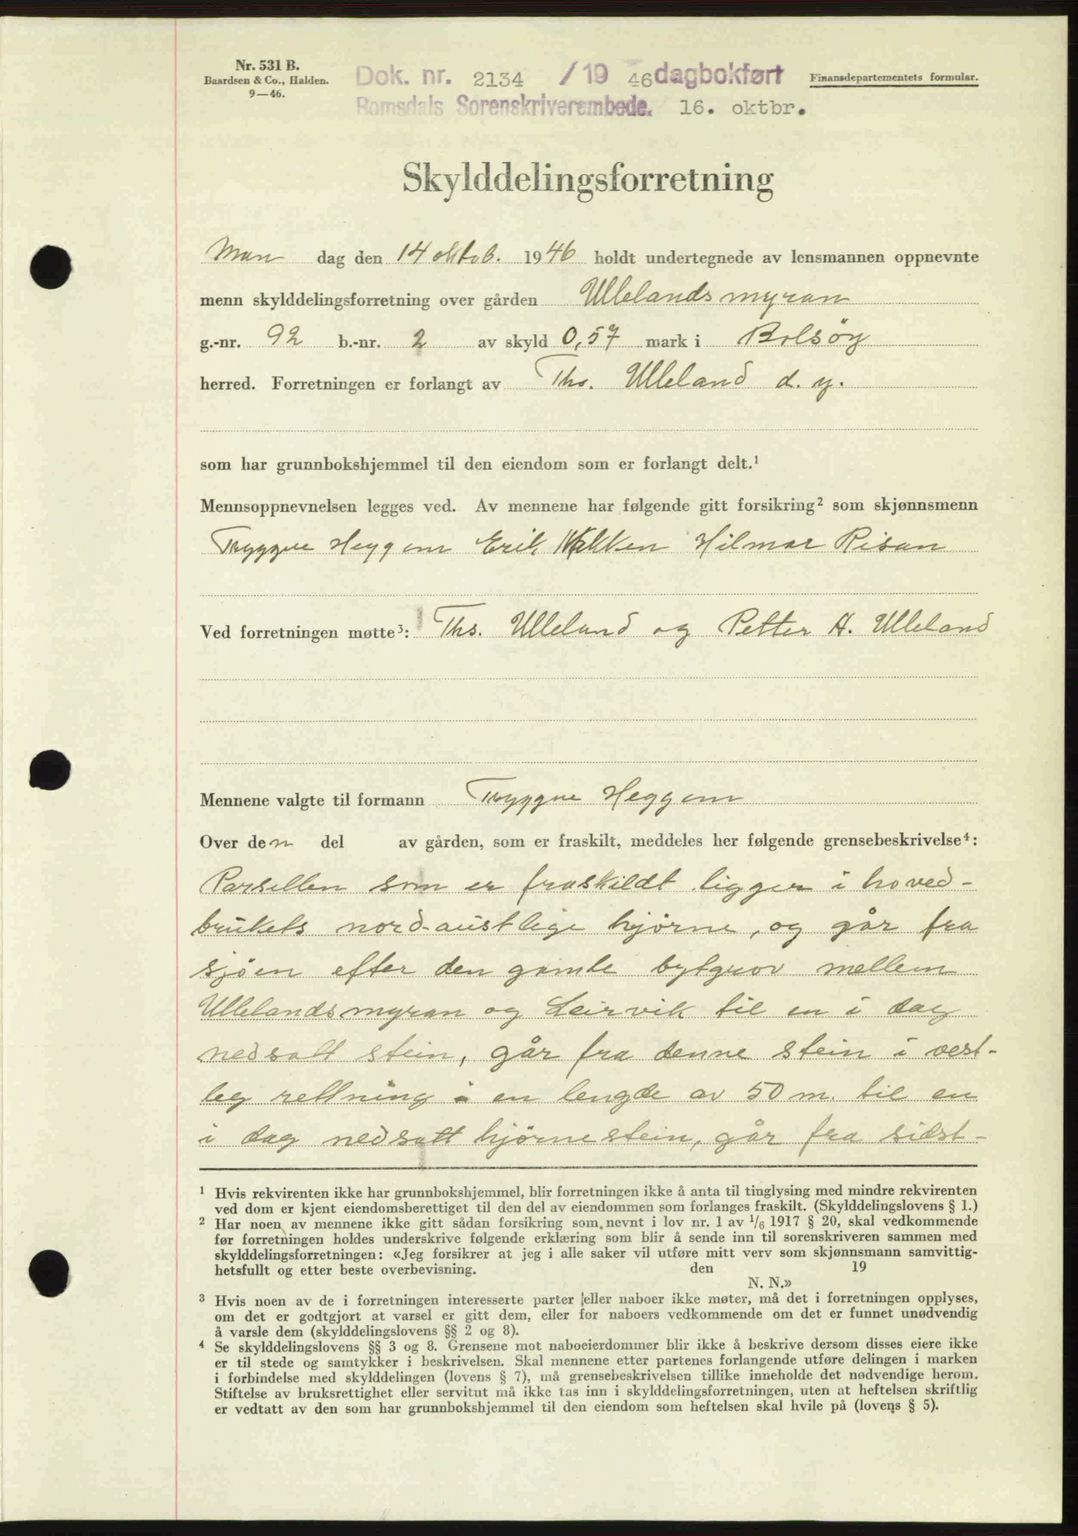 Nr. 531 B.
Baardsen & Co., Halden.
9—46.
Dok. nr. 2134 /19 46 dagbokført
Romsdals Sorenskriverembede. 16. oktbr.
Finansdepartementets formular.
Skylddelingsforretning
Man dag den 14 oktob. 1946 holdt undertegnede av lensmannen oppnevnte
menn skylddelingsforretning over gården Ullelandsmyran
g.-nr. 92 b.-nr. 2 av skyld 0,57 mark i Bolsøy
herred. Forretningen er forlangt av Ths. Ulleland d. y.
som har grunnbokshjemmel til den eiendom som er forlangt delt.¹
Mennsoppnevnelsen legges ved. Av mennene har følgende gitt forsikring² som skjønnsmenn
Tryggve Heggem Erik Mekken Hilmar Risan
Ved forretningen møtte³: Ths. Ulleland og Petter H. Ulleland
Mennene valgte til formann Tryggve Heggem
Over den del av gården, som er fraskilt, meddeles her følgende grensebeskrivelse⁴:
Parsellen som er fraskildt ligger i hoved-
brukets nord-austlige hjørne, og går fra
sjøen efter den gamle bytgrov mellem
Ullelandsmyran og Leirvik til en i dag
nedsatt stein, går fra denne stein i vest-
leg rettning i en lengde av 50 m. til en
i dag nedsatt hjørnestein, går fra sidst-
¹ Hvis rekvirenten ikke har grunnbokshjemmel, blir forretningen ikke å anta til tinglysing med mindre rekvirenten
ved dom er kjent eiendomsberettiget til den del av eiendommen som forlanges fraskilt. (Skylddelingslovens § 1.)
² Har noen av mennene ikke gitt sådan forsikring som nevnt i lov nr. 1 av 1/6 1917 § 20, skal vedkommende
før forretningen holdes underskrive følgende erklæring som blir å sende inn til sorenskriveren sammen med
skylddelingsforretningen: «Jeg forsikrer at jeg i alle saker vil utføre mitt verv som skjønnsmann samvittig-
hetsfullt og etter beste overbevisning. den 19
N. N.»
³ Hvis noen av de i forretningen interesserte parter eller naboer ikke møter, må det i forretningen opplyses,
om det er godtgjort at varsel er gitt dem, eller for naboers vedkommende om det er funnet unødvendig
å varsle dem (skylddelingslovens §§ 2 og 8).
⁴ Se skylddelingslovens §§ 3 og 8. Grensene mot naboeierdommer blir ikke å beskrive dersom disses eiere ikke
er til stede og samtykker i beskrivelsen. Skal mennene etter partenes forlangende utføre delingen i marken
i forbindelse med skylddelingen (lovens § 7), må grensebeskrivelsen tillike inneholde det nødvendige herom.
Stiftelse av bruksrettighet eller servitut må ikke tas inn i skylddelingsforretningen, uten at heftelsen skriftlig
er vedtatt av den som har grunnbokshjemmel til den eiendom som heftelsen skal hvile på (lovens § 5).